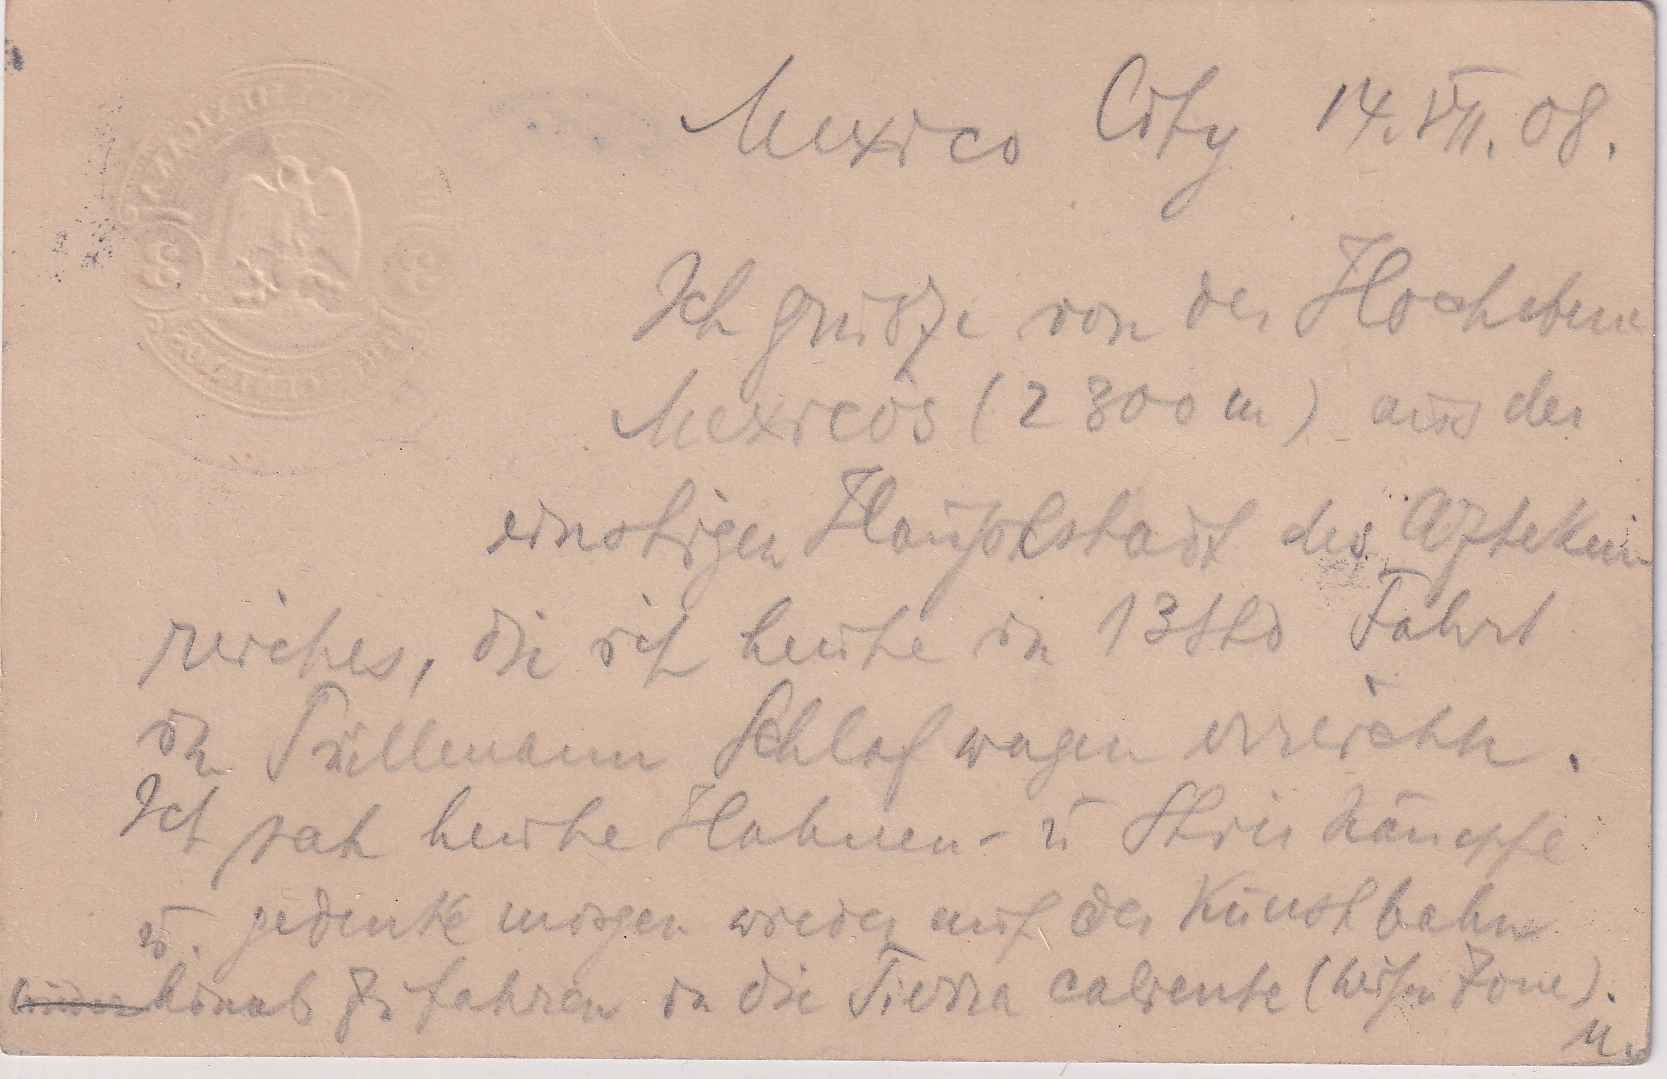 Mexico City 14. VII. 08.
Ich grüße von der Hochebene
Mexicos (2300 m) aus der
einstigen Hauptstadt des Azteken
reiches, die ich heute in 13 Std Fahrt
in Pullemann Schlafwagen erreichte.
Ich sah heute Hahnen- u Stierkämpfe
u. gedenke morgen wieder auf der Kunstbahn
hinab zu fahren in die Tierra caliente (heiße Zone).